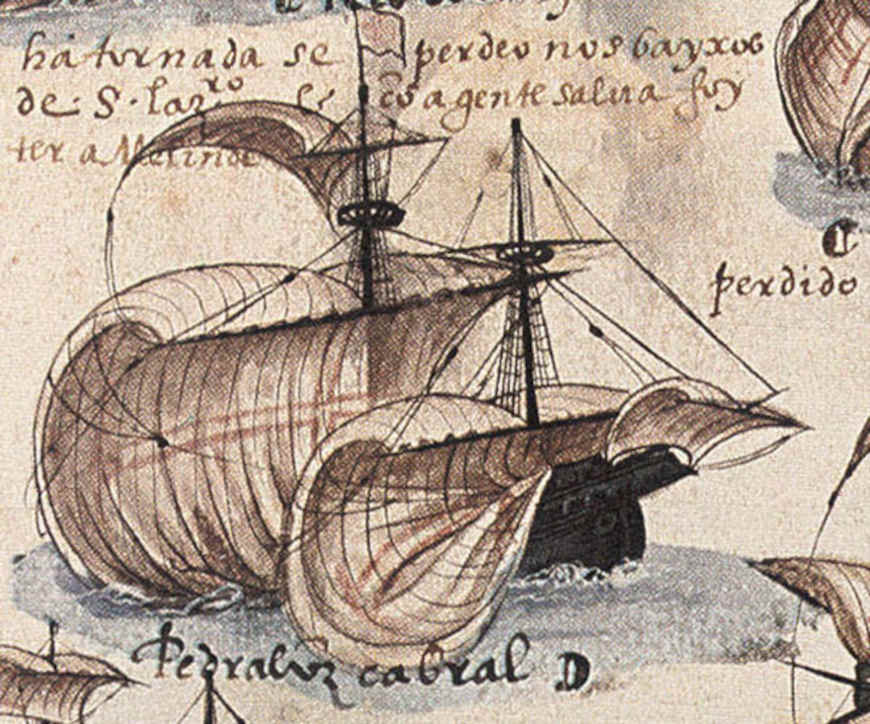 ha tornada se perdeo nos bayxos
de .S. lazro co a gente salua foy
ter a Melinde
perdido
Pedraluz cabral D